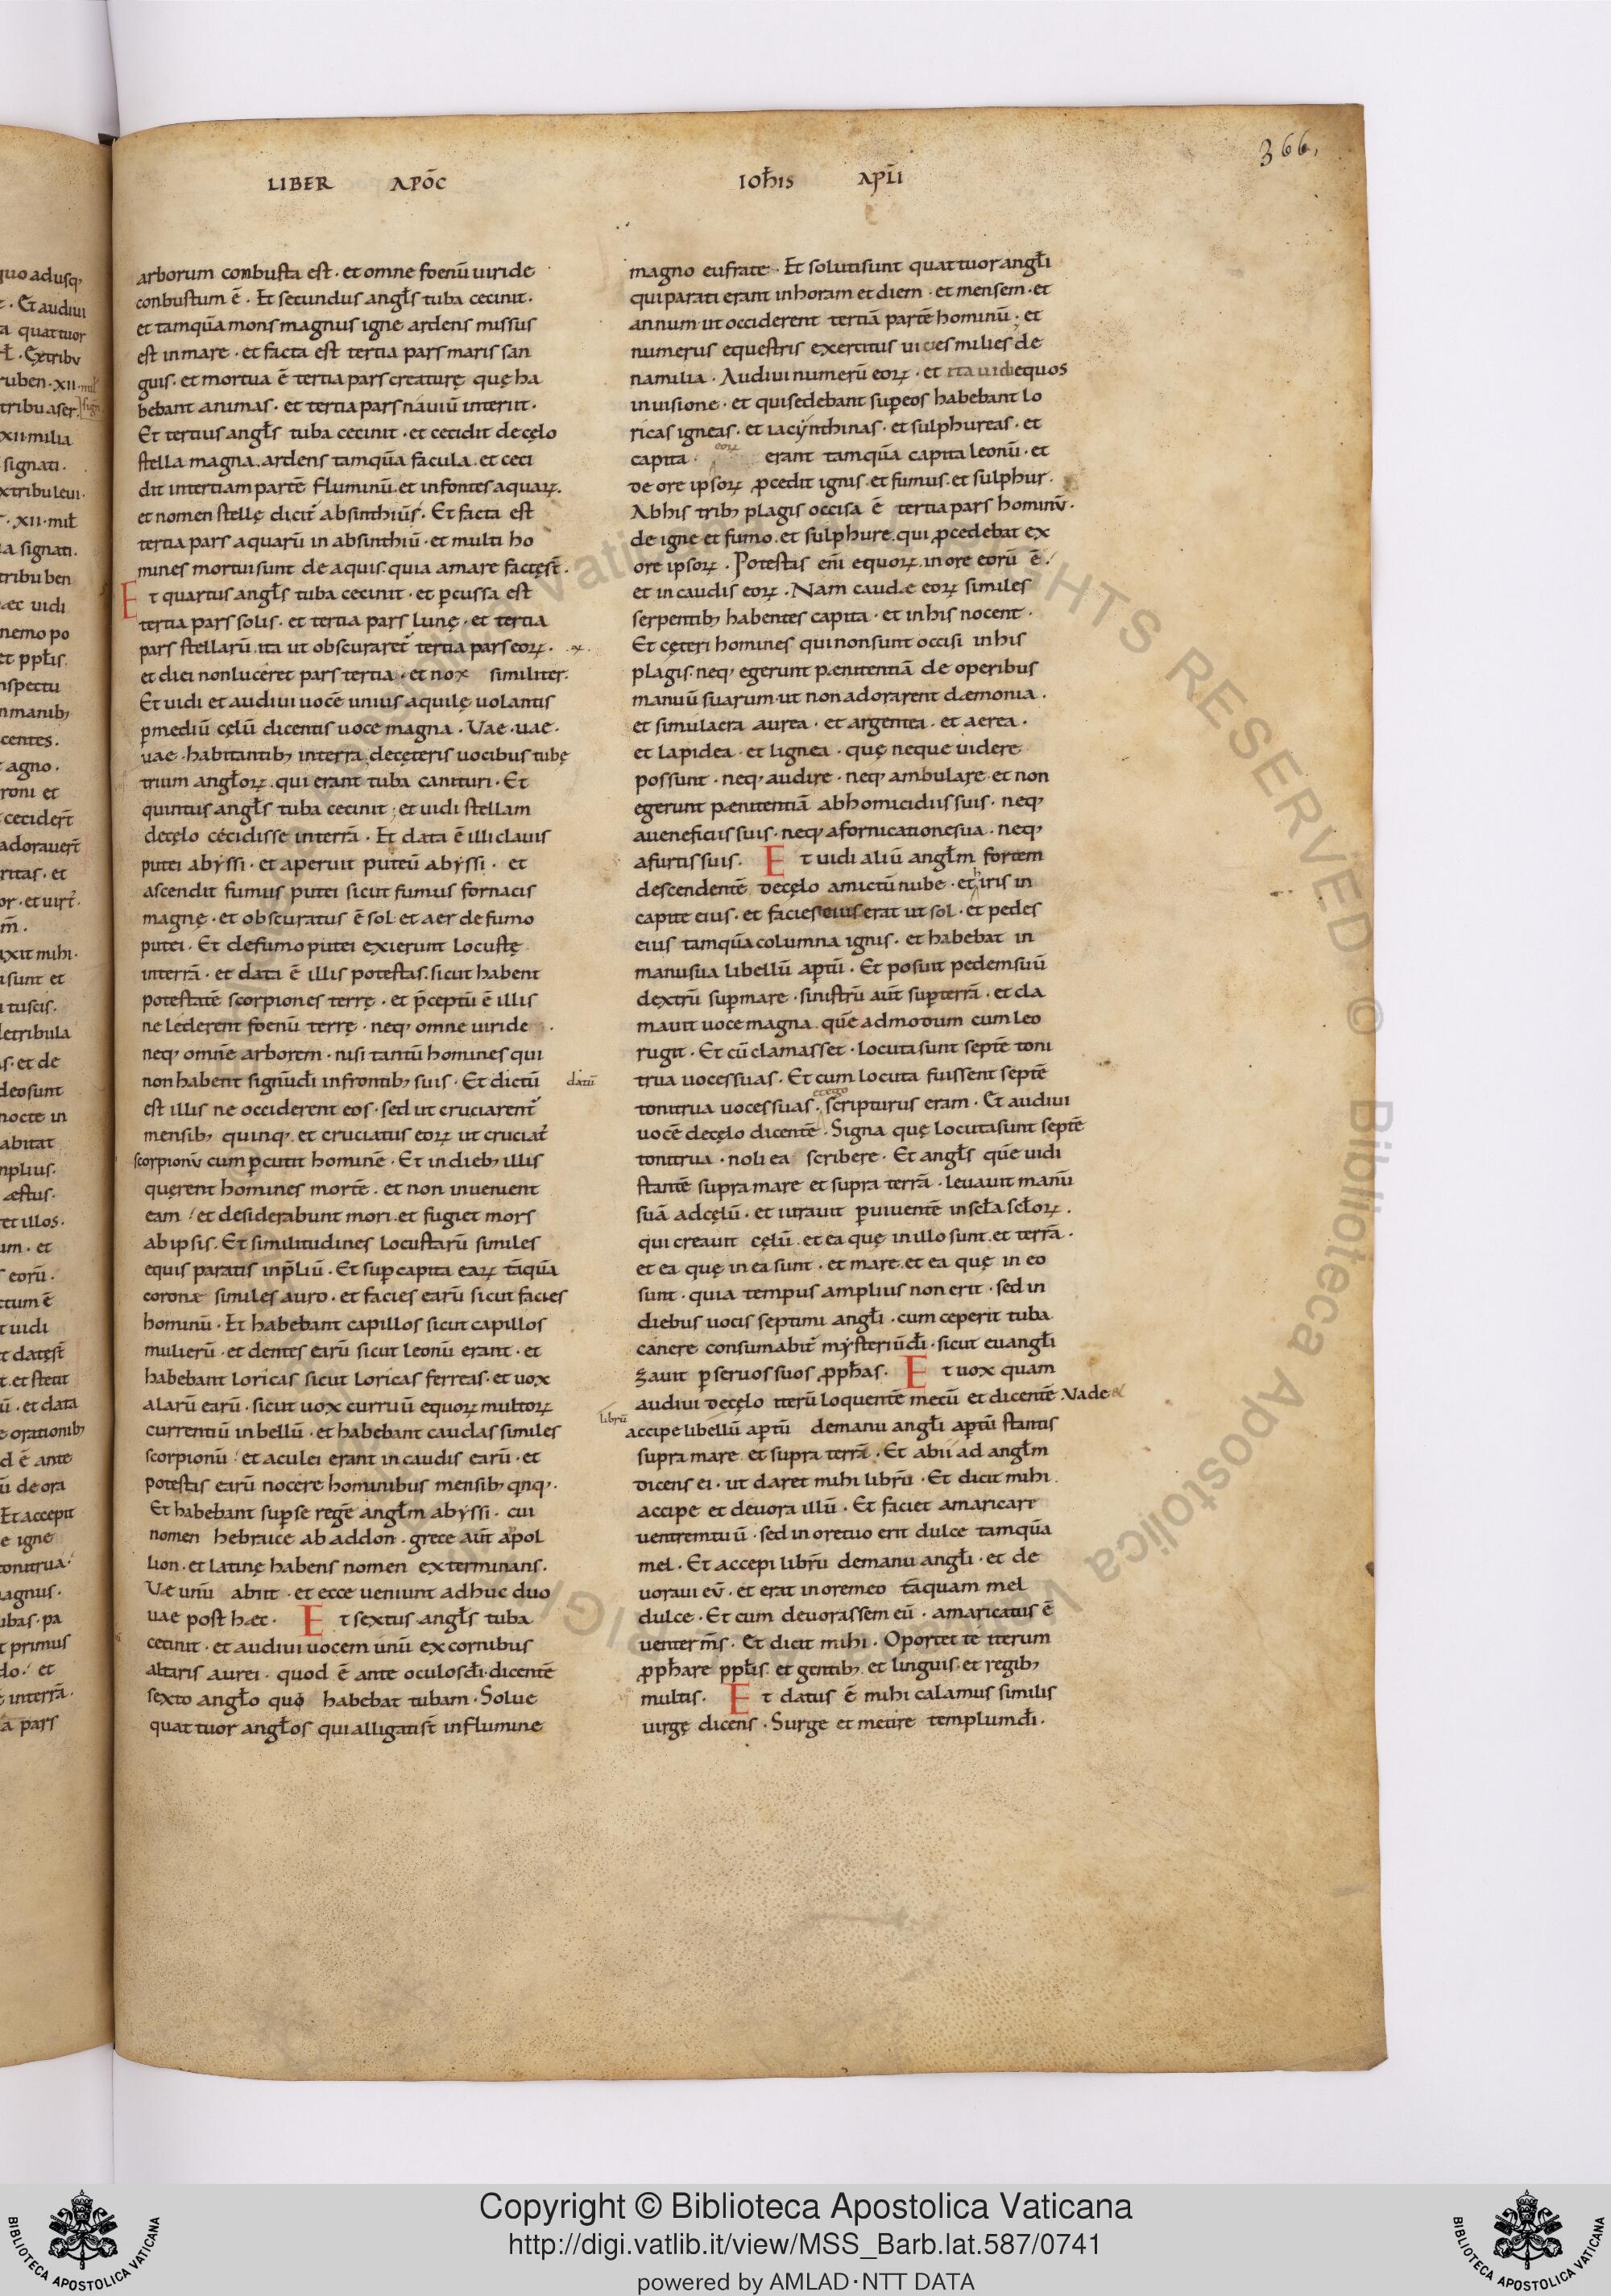 366,
LIBER APOC̄ IOH̄IS APL̄I
arborum conbusta est · et omne foenū uiride
conbustum ē · Et secundus angl̄s tuba cecinit ·
et tamquā mons magnus igne ardens missus
est in mare · et facta est tertia pars maris san
guis · et mortua ē tertia pars creaturę quę ha
bebant animas · et tertia pars nauiū interiit ·
Et tertius angl̄s tuba cecinit · et cecidit de cęlo
stella magna · ardens tamquā facula · et ceci
dit in tertiam partē fluminū · et in fontes aquaꝝ ·
et nomen stellę dicit̄ absinthiūs · Et facta est
tertia pars aquarū in absinthiū · et multi ho
mines mortui sunt de aquis · quia amare factęst̄ ·
Et quartus angl̄s tuba cecinit · et ꝑcussa est
tertia pars solis · et tertia pars lunę · et tertia
pars stellarū · ita ut obscuraret̄ tertia pars eoꝝ ·
et diei non luceret pars tertia · et nox similiter ·
Et uidi et audiui uocē unius aquilę uolantis
ꝑ mediū cęlū dicentis uoce magna · Vae · uae ·
uae · habitantibꝫ in terra · de cęteris uocibus tubę
trium angl̄oꝝ · qui erant tuba canituri · Et
quintus angl̄s tuba cecinit ; et uidi stellam
de cęlo cecidisse in terrā · Et data ē illi clauis
putei abyssi · et aperuit puteū abyssi · et
ascendit fumus putei sicut fumus fornacis
magnę · et obscuratus ē sol · et aer de fumo
putei · Et de fumo putei exierunt locustę
in terrā · et data ē illis potestas · sicut habent
potestatē scorpiones terrę · et p̄ceptū ē illis
ne lederent foenū terrę · neqꝫ omne uiride ·
neqꝫ omnē arborem · nisi tantū homines qui
non habent signū dī in frontibꝫ suis · Et dictū
datū
est illis ne occiderent eos · sed ut cruciarent̄
mensibꝫ quinqꝫ · et cruciatus eoꝝ ut cruciat̄
scorpionū cum ꝑcutit hominē · Et in diebꝫ illis
quęrent homines mortē · et non inuenient
eam · et desiderabunt mori · et fugiet mors
ab ipsis · Et similitudines locustarū similes
equis paratis in p̄liū · Et suꝑ capita eaꝝ tāquā
coronæ similes auro · et facies earū sicut facies
hominū · Et habebant capillos sicut capillos
mulierū · et dentes earū sicut leonū erant · et
habebant loricas sicut loricas ferreas · et uox
alarū earū · sicut uox curruū equoꝝ multoꝝ
currentiū in bellū · et habebant caudas similes
scorpionū · et aculei erant in caudis earū · et
potestas earū nocere hominibus mensibꝫ qnqꝫ ·
Et habebant suꝑ se regē angl̄m abyssi · cui
nomen hebraice abaddon · grece aūt apol
lion · et latinę habens nomen exterminans ·
Væ unū abiit · et ecce ueniunt adhuc duo
uae post hæc · Et sextus angl̄s tuba
cecinit · et audiui uocem unū ex cornibus
altaris aurei · quod ē ante oculos dī · dicentē
sexto angl̄o quo habebat tubam · Solue
quattuor angl̄os qui alligati st̄ in flumine
magno eufrate · Et soluti sunt quattuor angl̄i
qui parati erant in horam et diem · et mensem · et
annum · ut occiderent tertiā partē hominū ; et
numerus equestris exercitus uicies milies de
na milia · Audiui numerū eoꝝ · et ita uidi equos
in uisione · et qui sedebant suꝑ eos habebant lo
ricas igneas · et iacynthinas · et sulphureas · et
eoꝝ
capita · erant tamquā capita leonū · et
de ore ipsoꝝ ꝓcedit ignis · et fumus · et sulphur ·
Ab his tribꝫ plagis occisa ē tertia pars hominū ·
de igne et fumo · et sulphure · qui ꝓcedebat ex
ore ipsoꝝ · Potestas eni͞ equoꝝ · in ore eorū ē ·
et in caudis eoꝝ · Nam caudæ eoꝝ similes
serpentibꝫ habentes capita · et in his nocent ·
Et cęteri homines qui non sunt occisi in his
plagis · neqꝫ egerunt pænitentiā de operibus
manuū suarum · ut non adorarent dæmonia ·
et simulacra aurea · et argentea · et aerea ·
et lapidea · et lignea · quę neque uidere
possunt · neqꝫ audire · neqꝫ ambulare · et non
egerunt pænitentiā ab homicidiis suis · neqꝫ
a ueneficiis suis · neqꝫ a fornicatione sua · neqꝫ
a furtis suis · Et uidi aliū angl̄m fortem
descendentē de cęlo amictū nube · et iris in
capite eius · et facies eius erat ut sol · et pedes
eius tamquā columna ignis · et habebat in
manu sua libellū aꝑtū · Et posuit pedem suū
dextrū suꝑ mare · sinistrū aūt suꝑ terrā · et cla
mauit uoce magna · quēadmodum cum leo
rugit · Et cū clamasset · locuta sunt septē toni
trua uoces suas · Et cum locuta fuissent septē
et ego
tonitrua uoces suas · scripturus eram · Et audiui
uocē de cęlo dicentē · Signa quę locuta sunt septē
tonitrua · noli ea scribere · Et angl̄s quē uidi
stantē supra mare et supra terrā · leuauit manū
suā ad cęlū · et iurauit ꝑ uiuentē in scl̄a scl̄oꝝ ·
qui creauit cęlū · et ea quę in illo sunt · et terrā ·
et ea quę in ea sunt · et mare · et ea quę in eo
sunt · quia tempus amplius non erit · sed in
diebus uocis septimi angl̄i · cum ceperit tuba
canere consumabit̄ mysteriū dī · sicut euangl̄i
zauit ꝑ seruos suos ꝓph̄as · Et uox quam
audiui de cęlo iterū loquentē mecū et dicentē Vade &
librū
accipe libellū aꝑtū de manu angl̄i aꝑtū stantis
supra mare et supra terrā · Et abii ad angl̄m
dicens ei · ut daret mihi librū · Et dicit mihi
accipe et deuora illū · Et faciet amaricare
uentrem tuū · sed in ore tuo erit dulce tamquā
mel · Et accepi librū de manu angl̄i · et de
uoraui eū · et erat in ore meo tāquam mel
dulce · Et cum deuorassem eū · amaricatus ē
uenter m̄s · Et dicit mihi · Oportet te iterum
ꝓph̄are ppl̄is · et gentibꝫ · et linguis · et regibꝫ
multis · Et datus ē mihi calamus similis
uirgę dicens · Surge et metire templum dī ·
Copyright © Biblioteca Apostolica Vaticana
http://digi.vatlib.it/view/MSS_Barb.lat.587/0741
powered by AMLAD·NTT DATA
BIBLIOTECA APOSTOLICA VATICANA
BIBLIOTECA APOSTOLICA VATICANA